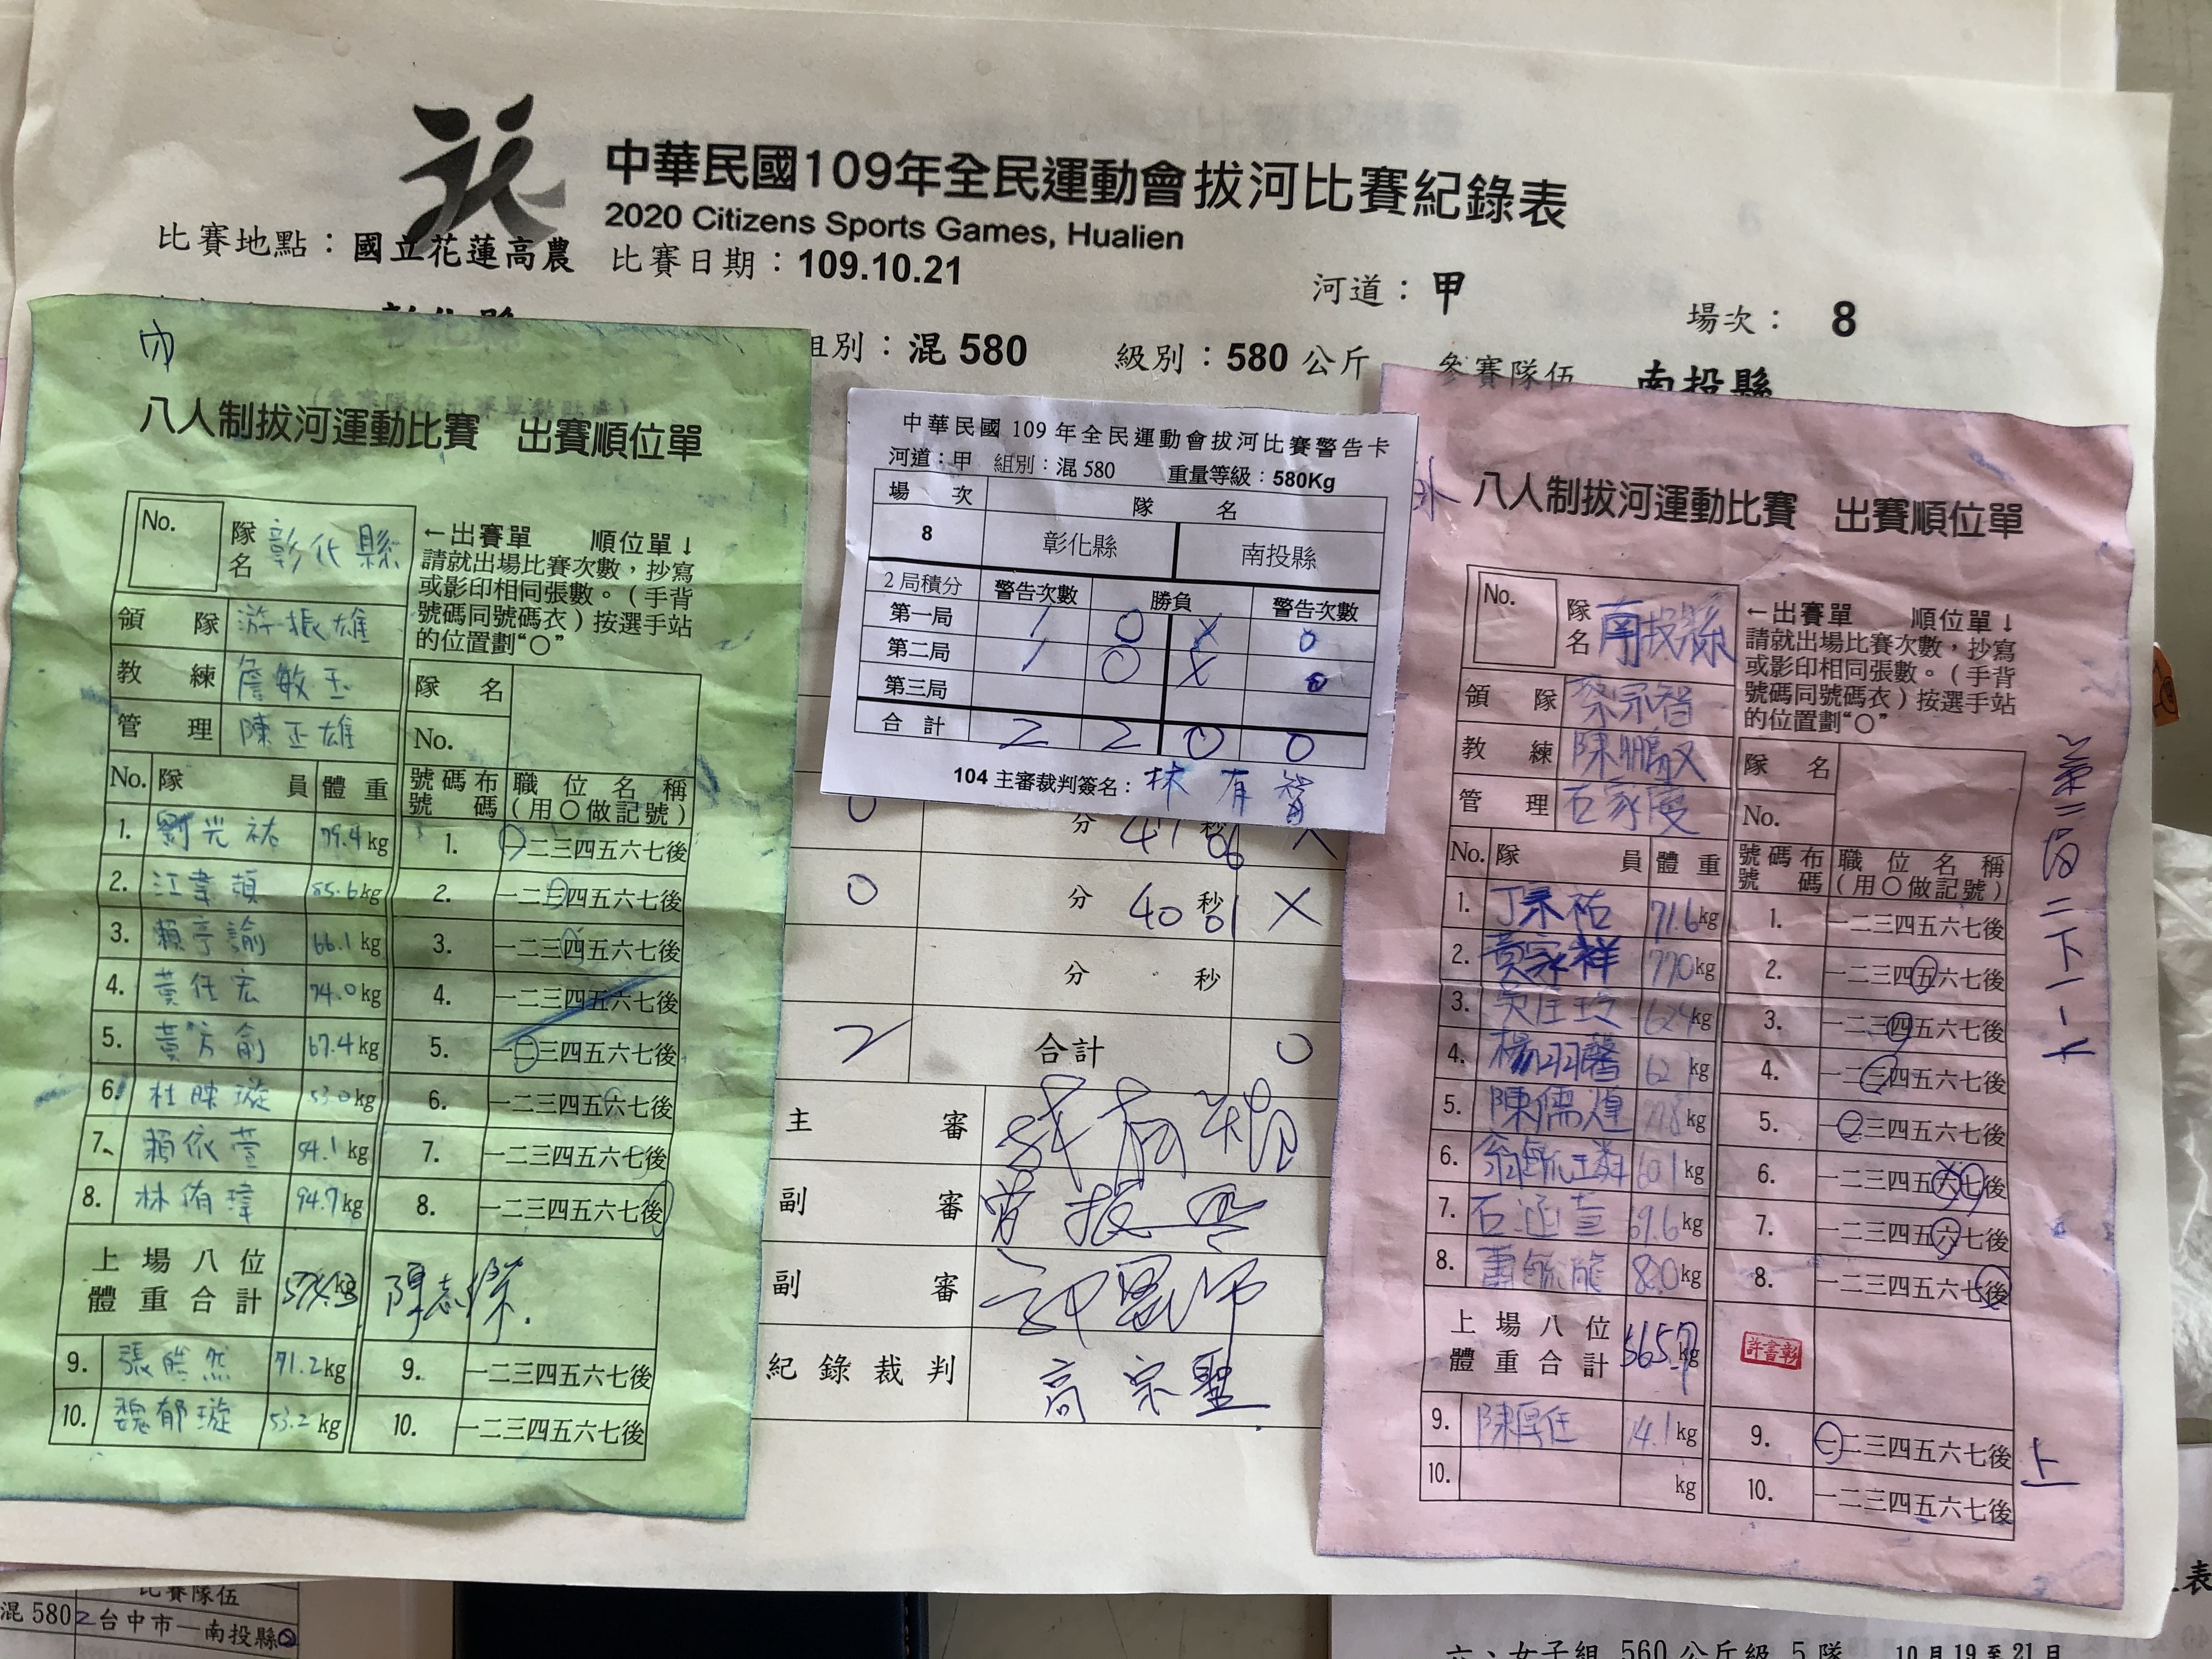 中華民國109年全民運動會拔河比賽紀錄表
2020 Citizens Sports Games, Hualien
比賽地點：國立花蓮高農 比賽日期：109.10.21 河道：甲 場次： 8
彰化縣 組別：混 580 級別：580 公斤 參賽隊伍 南投縣
內
八人制拔河運動比賽 出賽順位單
No. 隊名 彰化縣
←出賽單 順位單↓
請就出場比賽次數，抄寫
或影印相同張數。(手背
號碼同號碼衣)按選手站
的位置劃“○”
領隊 游振雄
教練 詹敏玉
管理 陳正雄
隊名
No.
No. 隊員 體重 號碼布號碼 職位名稱(用○做記號)
1. 劉光祐 79.4kg 1. 一二三四五六七後
2. 江韋蓢 85.6kg 2. 一二三四五六七後
3. 賴亭諭 66.1kg 3. 一二三四五六七後
4. 黃任宏 74.0kg 4. 一二三四五六七後
5. 黃方俞 67.4kg 5. 一二三四五六七後
6. 杜映璇 53.0kg 6. 一二三四五六七後
7. 賴依萱 54.1kg 7. 一二三四五六七後
8. 林侑瑋 94.7kg 8. 一二三四五六七後
上場八位體重合計 574.3kg
9. 張皓然 71.2kg 9. 一二三四五六七後
10. 魏郁璇 53.2kg 10. 一二三四五六七後
中華民國 109 年全民運動會拔河比賽警告卡
河道：甲 組別：混 580 重量等級：580Kg
場次 隊名
8 彰化縣 南投縣
2 局積分 警告次數 勝負 警告次數
第一局 1 0 X 0
第二局 1 0 X 0
第三局
合計 2 2 0 0
104 主審裁判簽名：林有智
0 分 47 秒 06 X
0 分 40 秒 01 X
分 秒
2 合計 0
主審
副審
副審
紀錄裁判 高宗聖
外
八人制拔河運動比賽 出賽順位單
No. 隊名 南投縣
←出賽單 順位單↓
請就出場比賽次數，抄寫
或影印相同張數。(手背
號碼同號碼衣)按選手站
的位置劃“○”
領隊 蔡宗智
教練 陳鵬仅
管理 石家慶
隊名
No.
No. 隊員 體重 號碼布號碼 職位名稱(用○做記號)
1. 丁禾祐 71.6kg 1. 一二三四五六七後
2. 黃家祥 77.0kg 2. 一二三四五六七後
3. 62.4kg 3. 一二三四五六七後
4. 楊羽馨 62.1kg 4. 一二三四五六七後
5. 陳儒煌 77.8kg 5. 一二三四五六七後
6. 60.1kg 6. 一二三四五六七後
7. 石涵萱 69.6kg 7. 一二三四五六七後
8. 82.0kg 8. 一二三四五六七後
上場八位體重合計 565.7kg 許書彰
9. 陳厚任 74.1kg 9. 一二三四五六七後 上
10. kg 10. 一二三四五六七後
第二局二下一上
比賽隊伍
混 580 2 台中市—南投縣 0
六、女子組 560 公斤級 5 隊 10 月 19 至 21 日
表